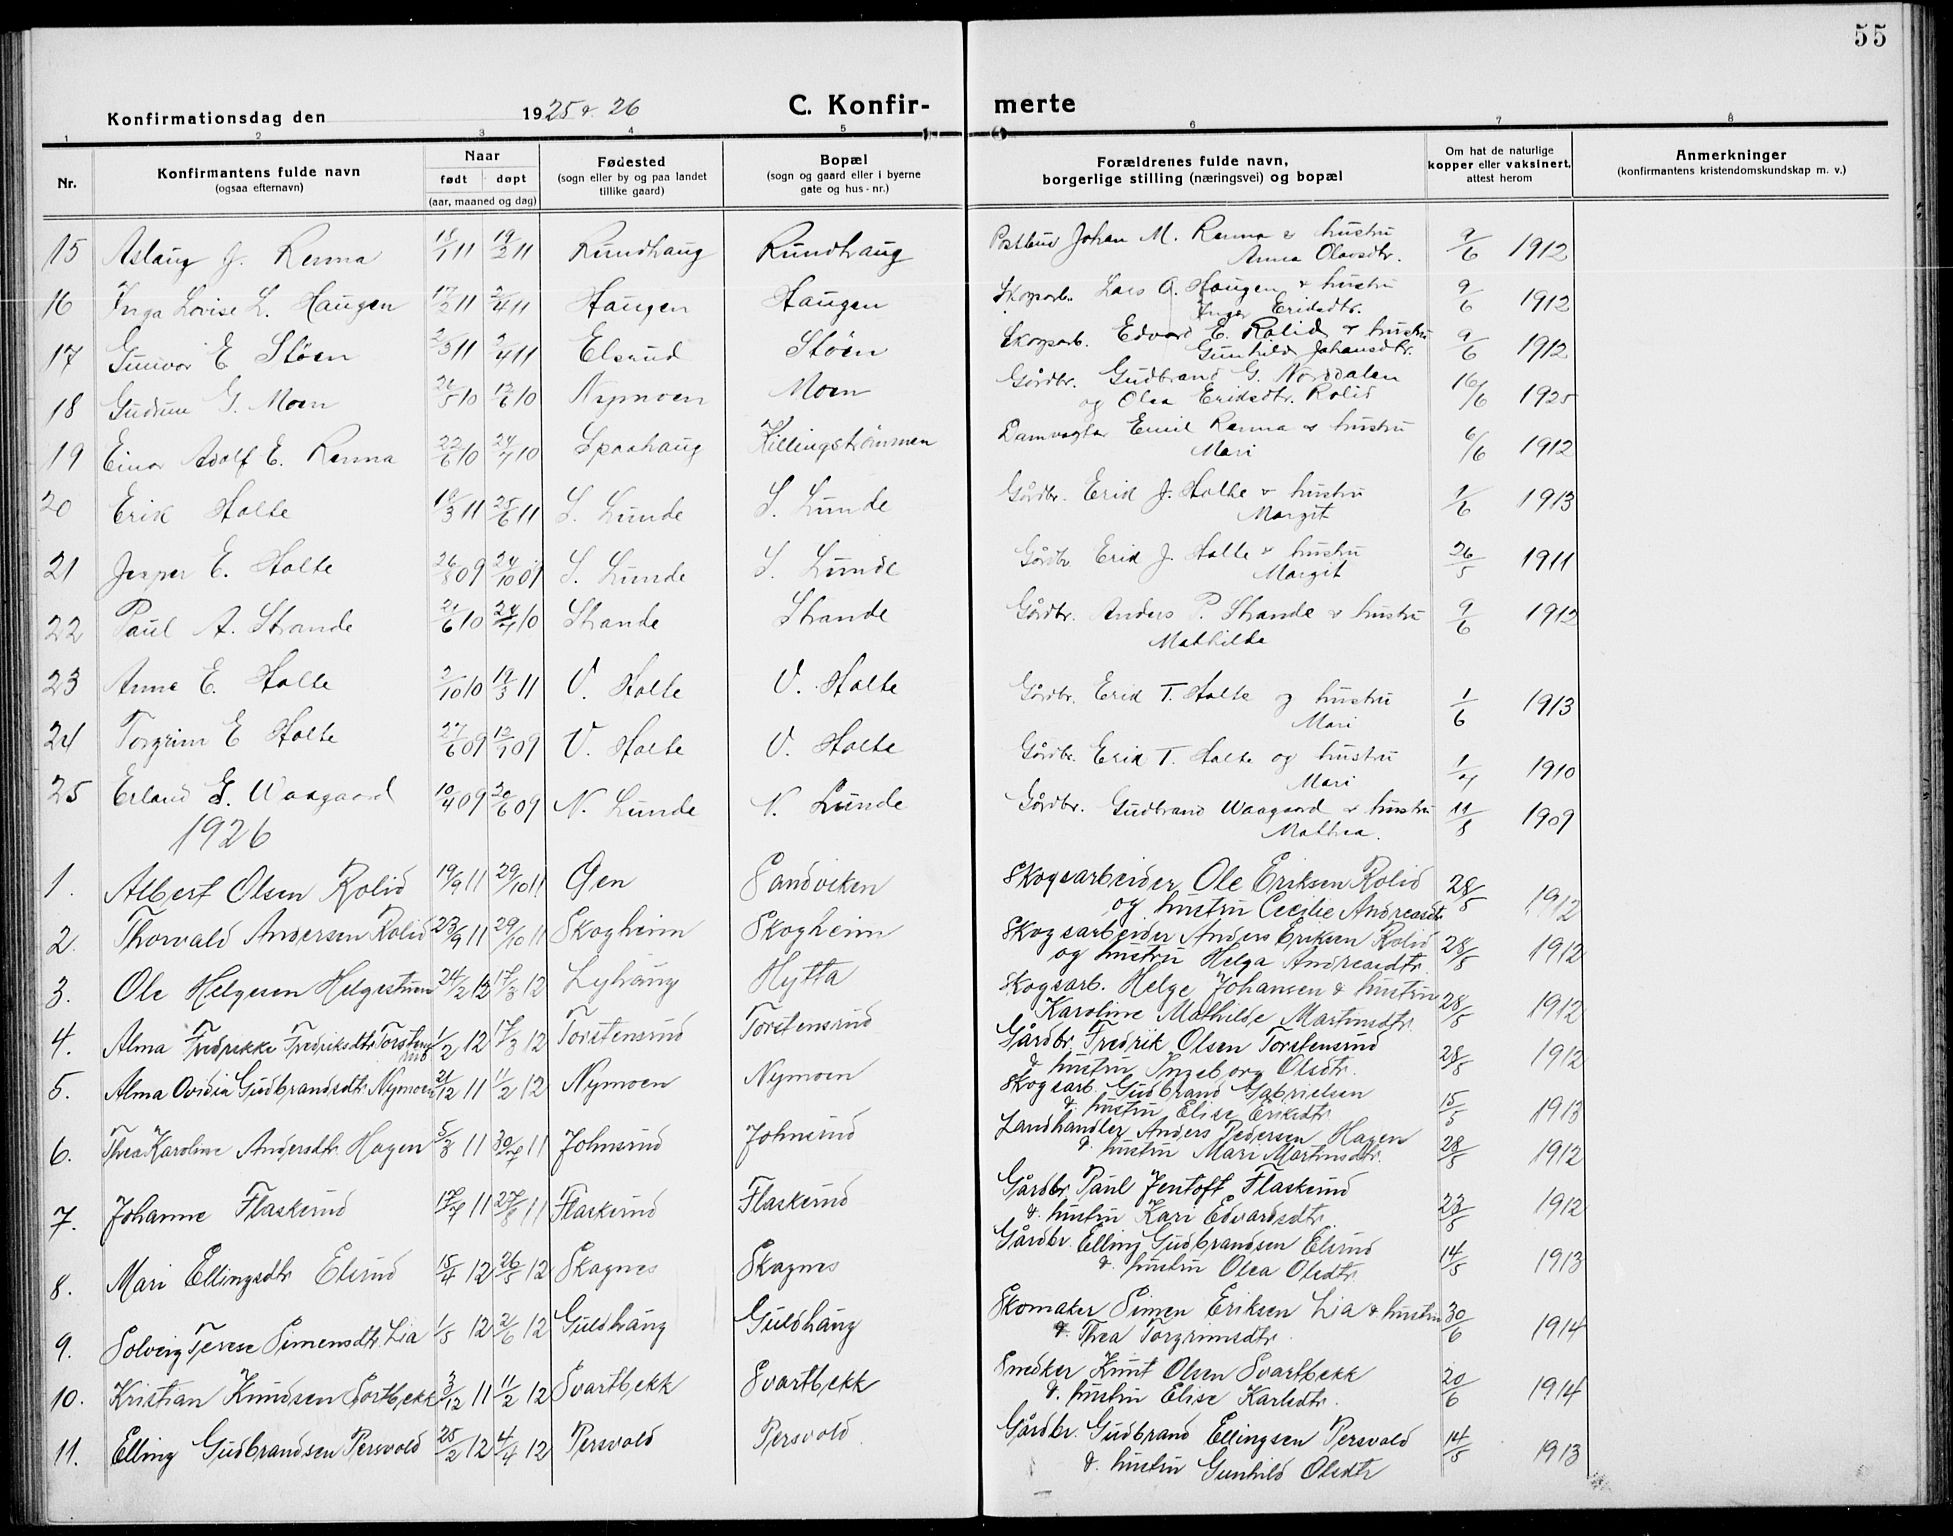 55
Konfirmationsdag den 1925 & 26 C. Konfir- merte
1 2 3 4 5 6 7 8
Nr. Konfirmantens fulde navn (ogsaa efternavn) Naar født døpt (aar, maaned og dag) Fødested (sogn eller by og paa landet tillike gaard) Bopæl (sogn og gaard eller i byerne gate og hus-nr.) Forældrenes fulde navn, borgerlige stilling (næringsvei) og bopæl Om hat de naturlige kopper eller vaksinert, attest herom Anmerkninger (konfirmantens kristendomskundskap m. v.)
15 Aslaug J. Renna 11 19/2 11 Rundhaug Rundhaug Postbud Johan M. Renna & hustru Anna Olavsdtr. 9/6 1912
16 Inga Lovise L. Haugen 17/2 11 2/4 11 Haugen Haugen Skogarb. Lars A. Haugen & hustru Inger Eriksdtr. 9/6 1912
17 Gunvor E Støen 2/3 11 2/4 11 Elsrud Støen Skogsarb. Edvard E. Rolid & hustru Gunhild Johansdtr. 9/6 1912
18 Gudrun G. Moen 26/5 10 12/6 10 Nymoen Moen Gårdbr. Gudbrand G. Norddalen og Olea Eriksdtr. Rolid 16/6 1925
19 Einar Adolf E. Renna 22/6 10 24/7 10 Spaahaug Killingstrømmen Damvogter Emil Renna & hustru Mari 6/6 1912
20 Erik Holte 3 11 25/6 11 S. Lunde S. Lunde Gårdbr. Erik J. Holte & hustru Margit 1/6 1913
21 Jesper E. Holte 26/8 09 24/10 09 S. Lunde S. Lunde Gårdbr Erik J. Holte & hustru Margit 26/5 1911
22 Paul A. Strande 21/6 10 24/7 10 Strande Strande Gårdbr. Anders P. Strande & hustru Mathilde 9/6 1912
23 Anne E. Holte 2/10 10 19/3 11 V. Holte V. Holte Gårdbr. Erik T. Holte og hustru Mari 1/6 1913
24 Torgrim E Holte 27/6 09 09 V. Holte V. Holte Gårdbr. Erik T. Holte og hustru Mari 1/7 1910
25 Erland G. Waagaard 10/4 09 20/6 09 N. Lunde N. Lunde Gårdbr. Gudbrand Waagaard & hustru Mathea. 11/8 1909
1926
1. Albert Olsen Rolid 19/9 11 29/10 11 Øen Sandviken Skogsarbeider Ole Eriksen Rolid og hustru Cecilie Andreasdtr 28/5 1912
2. Thorvald Andersen Rolid 23/9 11 29/10 11 Skogheim Skogheim Skogsarbeider Anders Eriksen Rolid og hustru Helga Andreasdtr. 28/5 1912
3. Ole Helgesen Helgestuen 24/2 12 17/3 12 Lyhaug Hytta Skogsarb. Helge Johansen & hustru Karoline Mathilde Martinsdtr. 28/5 1912
4. Alma Fredrikke Fredriksdtr. Torstensrud 1/2 12 17/3 12 Torstensrud Torstensrud Gårdbr. Fredrik Olsen Torstensrud & hustru Ingeborg Olsdtr. 28/5 1912
5. Alma Ovidia Gudbrandsdtr. Nymoen 21/12 11 11/2 12 Nymoen Nymoen Skogsarb. Gudbrand Gabrielsen & hustru Elise Eriksdtr 15/5 1913
6. Thea Karoline Andersdtr. Hagen 5/3 11 30/7 11 Johnsrud Johnsrud Landhandler Anders Pedersen Hagen & hustru Mari Martinsdtr. 28/5 1912
7. Johanne Flaskerud 17/7 11 27/8 11 Flaskerud Flaskerud Gårdbr. Paul Jentoft Flaskerud & hustru Kari Edvardsdtr. 28/5 1912
8. Mari Ellingsdtr Elsrud 15/4 12 26/5 12 Skagnes Skagnes Gårdbr. Elling Gudbrandsen Elsrud & hustru Olea Olsdtr. 14/5 1913
9. Solveig Terese Simensdtr. Lia 1/5 12 2/6 12 Guldhaug Guldhaug Skomaker Simen Eriksen Lia & hustru & Thea Torgrimsdtr. 30/6 1914
10. Kristian Knudsen Sortbekk 3/12 11 11/2 12 Svartbekk Svartbekk Snedker Knut Olsen Svartbekk & hustru Elise Karlsdtr. 20/6 1914
11. Elling Gudbrandsen Persvold 25/2 12 4/4 12 Persvold Persvold Gårdbr. Gudbrand Ellingsen Persvold & hustru Gunhild Olsdtr 14/5 1913